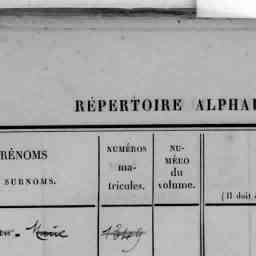 RÉPERTOIRE ALPHA
RÉNOMS
SURNOMS.
NUMÉROS
ma-
tricules.
NU-
MÉRO
du
volume.
(Il doit
Marie